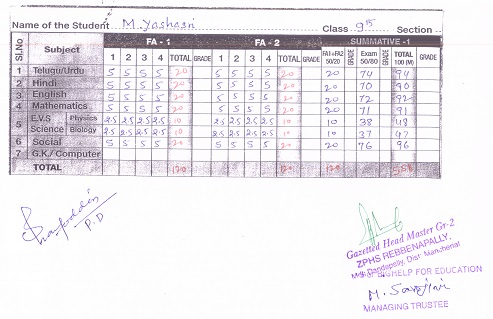 Name of the Student M. Yashasri Class 9th Section
Sl.No Subject FA - 1 FA - 2 SUMMATIVE - 1
1 2 3 4 TOTAL GRADE 1 2 3 4 TOTAL GRADE FA1+FA2 50/20 GRADE Exam 50/80 GRADE TOTAL 100 (M) GRADE
1 Telugu/Urdu 5 5 5 5 20 5 5 5 5 20 20 74 94
2 Hindi 5 5 5 5 20 5 5 5 5 20 20 70 90
3 English 5 5 5 5 20 5 5 5 5 20 20 72 92
4 Mathematics 5 5 5 5 20 5 5 5 5 20 20 71 91
5 E.V.S Science Physics 2.5 2.5 2.5 2.5 10 2.5 2.5 2.5 2.5 10 10 38 48
Biology 2.5 2.5 2.5 2.5 10 2.5 2.5 2.5 2.5 10 10 37 47
6 Social 5 5 5 5 20 5 5 5 5 20 20 76 96
7 G.K./ Computer
TOTAL 120 120 120 558
P.D
Gazetted Head Master Gr-2
ZPHS REBBENAPALLY,
Dandepally, Dist Mancherial
HELP FOR EDUCATION
M. Sarojini
MANAGING TRUSTEE